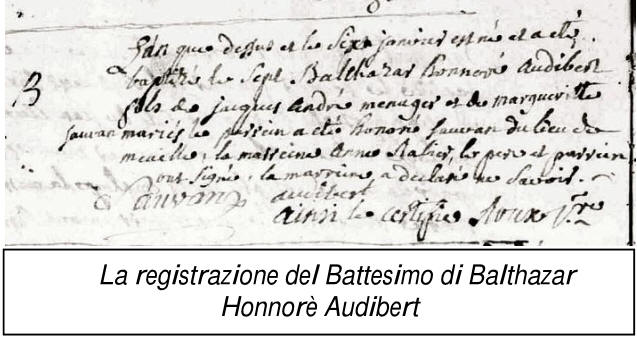 Lan que dessus et le six janvier est né et a eté
B baptizé le sept Balthazar Honnoré Audibert
fils de jacques andré menager et de margueritte
sauvan mariés le parrein a eté honoré sauvan du lieu de
la marreine Anne le pere et parrein
ont signé, la marreine a declaré ne savoir.
Sauvan audibert
ainsi le certifie Roux
La registrazione del Battesimo di Balthazar
Honnorè Audibert